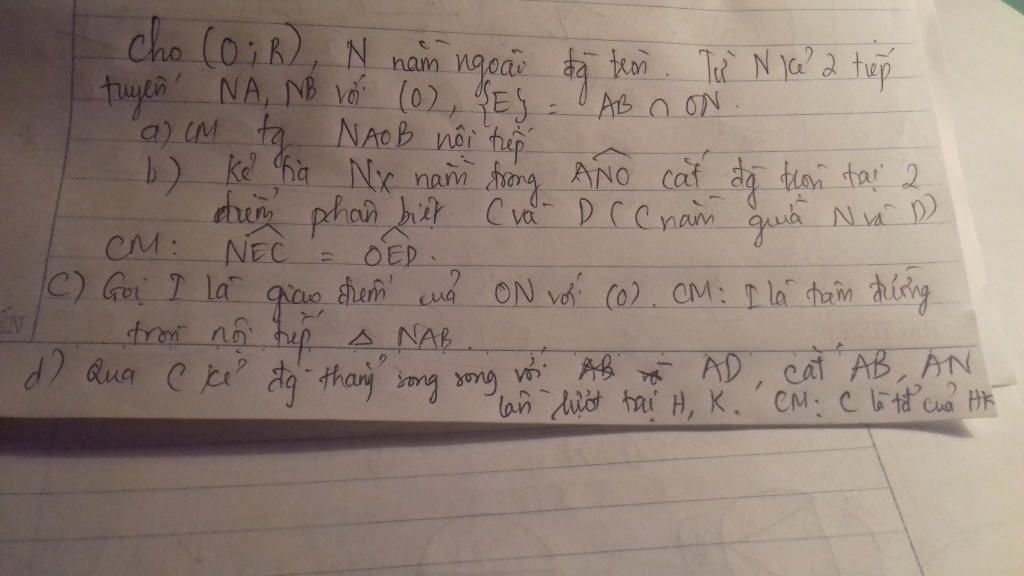 Cho (O;R), N nằm ngoài đg tròn. Từ N kẻ 2 tiếp
tuyến NA, NB với (O), {E} = AB ∩ ON.
a) CM tg NAOB nội tiếp
b) Kẻ tia Nx nằm trong ANO cắt đg tròn tại 2
điểm phân biệt C và D (C nằm giữa N và D)
CM: NEC = OED.
c) Gọi I là giao điểm của ON với (O). CM: I là tâm đường
tròn nội tiếp △ NAB.
d) Qua C kẻ đg thẳng song song với AD, cắt AB, AN
lần lượt tại H, K. CM: C là tđ của HK